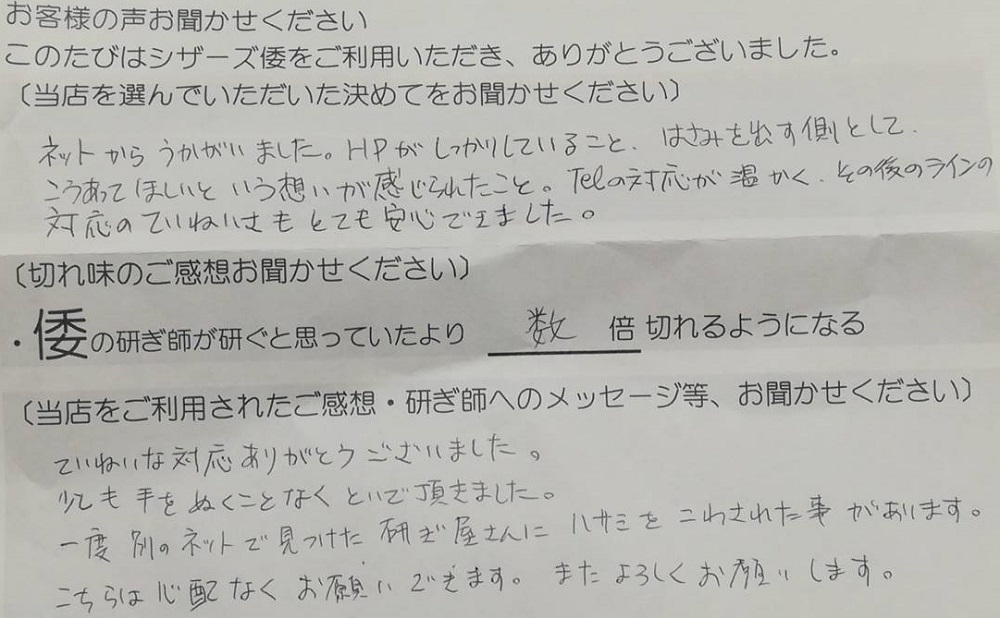 お客様の声お聞かせください
このたびはシザーズ倭をご利用いただき、ありがとうございました。
（当店を選んでいただいた決めてをお聞かせください）
ネットからうかがいました。HPがしっかりしていること、はさみを出す側として、
こうあってほしいという想いが感じられたこと。Telの対応が温かく、その後のラインの
対応のていねいさもとても安心できました。
（切れ味のご感想お聞かせください）
・倭の研ぎ師が研ぐと思っていたより 数 倍 切れるようになる
（当店をご利用されたご感想・研ぎ師へのメッセージ等、お聞かせください）
ていねいな対応ありがとうございました。
少しも手をぬくことなくといで頂きました。
一度別のネットで見つけた研ぎ屋さんにハサミをこわされた事があります。
こちらは心配なくお願いできます。またよろしくお願いします。